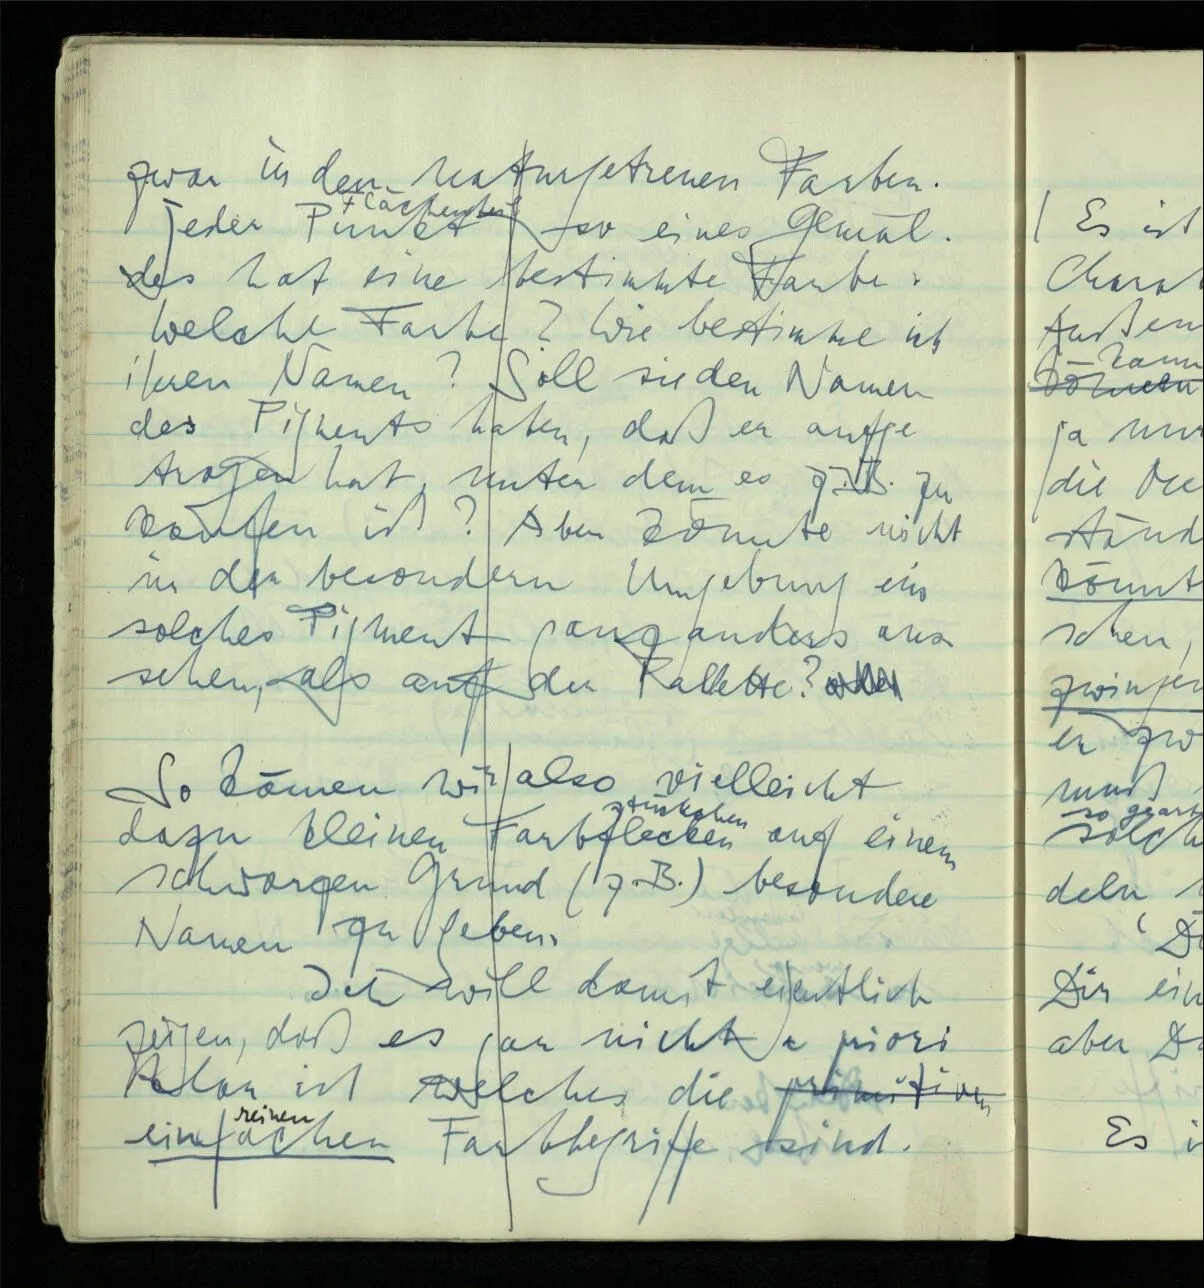 zwar in den naturgetreuen Farben.
Flächenteil
Jeder Punkt so eines Gemäl-
des hat eine bestimmte Farbe.
Welche Farbe? Wie bestimme ich
ihren Namen? Soll sie den Namen
des Pigments haben, daß er aufge
tragen hat, unter dem es z.B. zu
kaufen ist? Aber könnte nicht
in der besondern Umgebung ein
solches Pigment ganz anders aus
sehen, als auf der Pallette? oder
So kömen wir also vielleicht
stückchen
dazu kleinen Farbflecken auf einem
schwarzen Grund (z.B.) besondere
Namen zu geben.
Ich will damit eigentlich
zeigen, daß es gar nicht a priori
klar ist welches die primitiven
reinen
einfachen Farbbegriffe sind.
Es ist
Charak
Außen
kann
könnten
ja nur
die
ständ
könnt
schen,
zwingen
er zw
muß
so geart
solch
deln
Dir ein
aber D
Es i